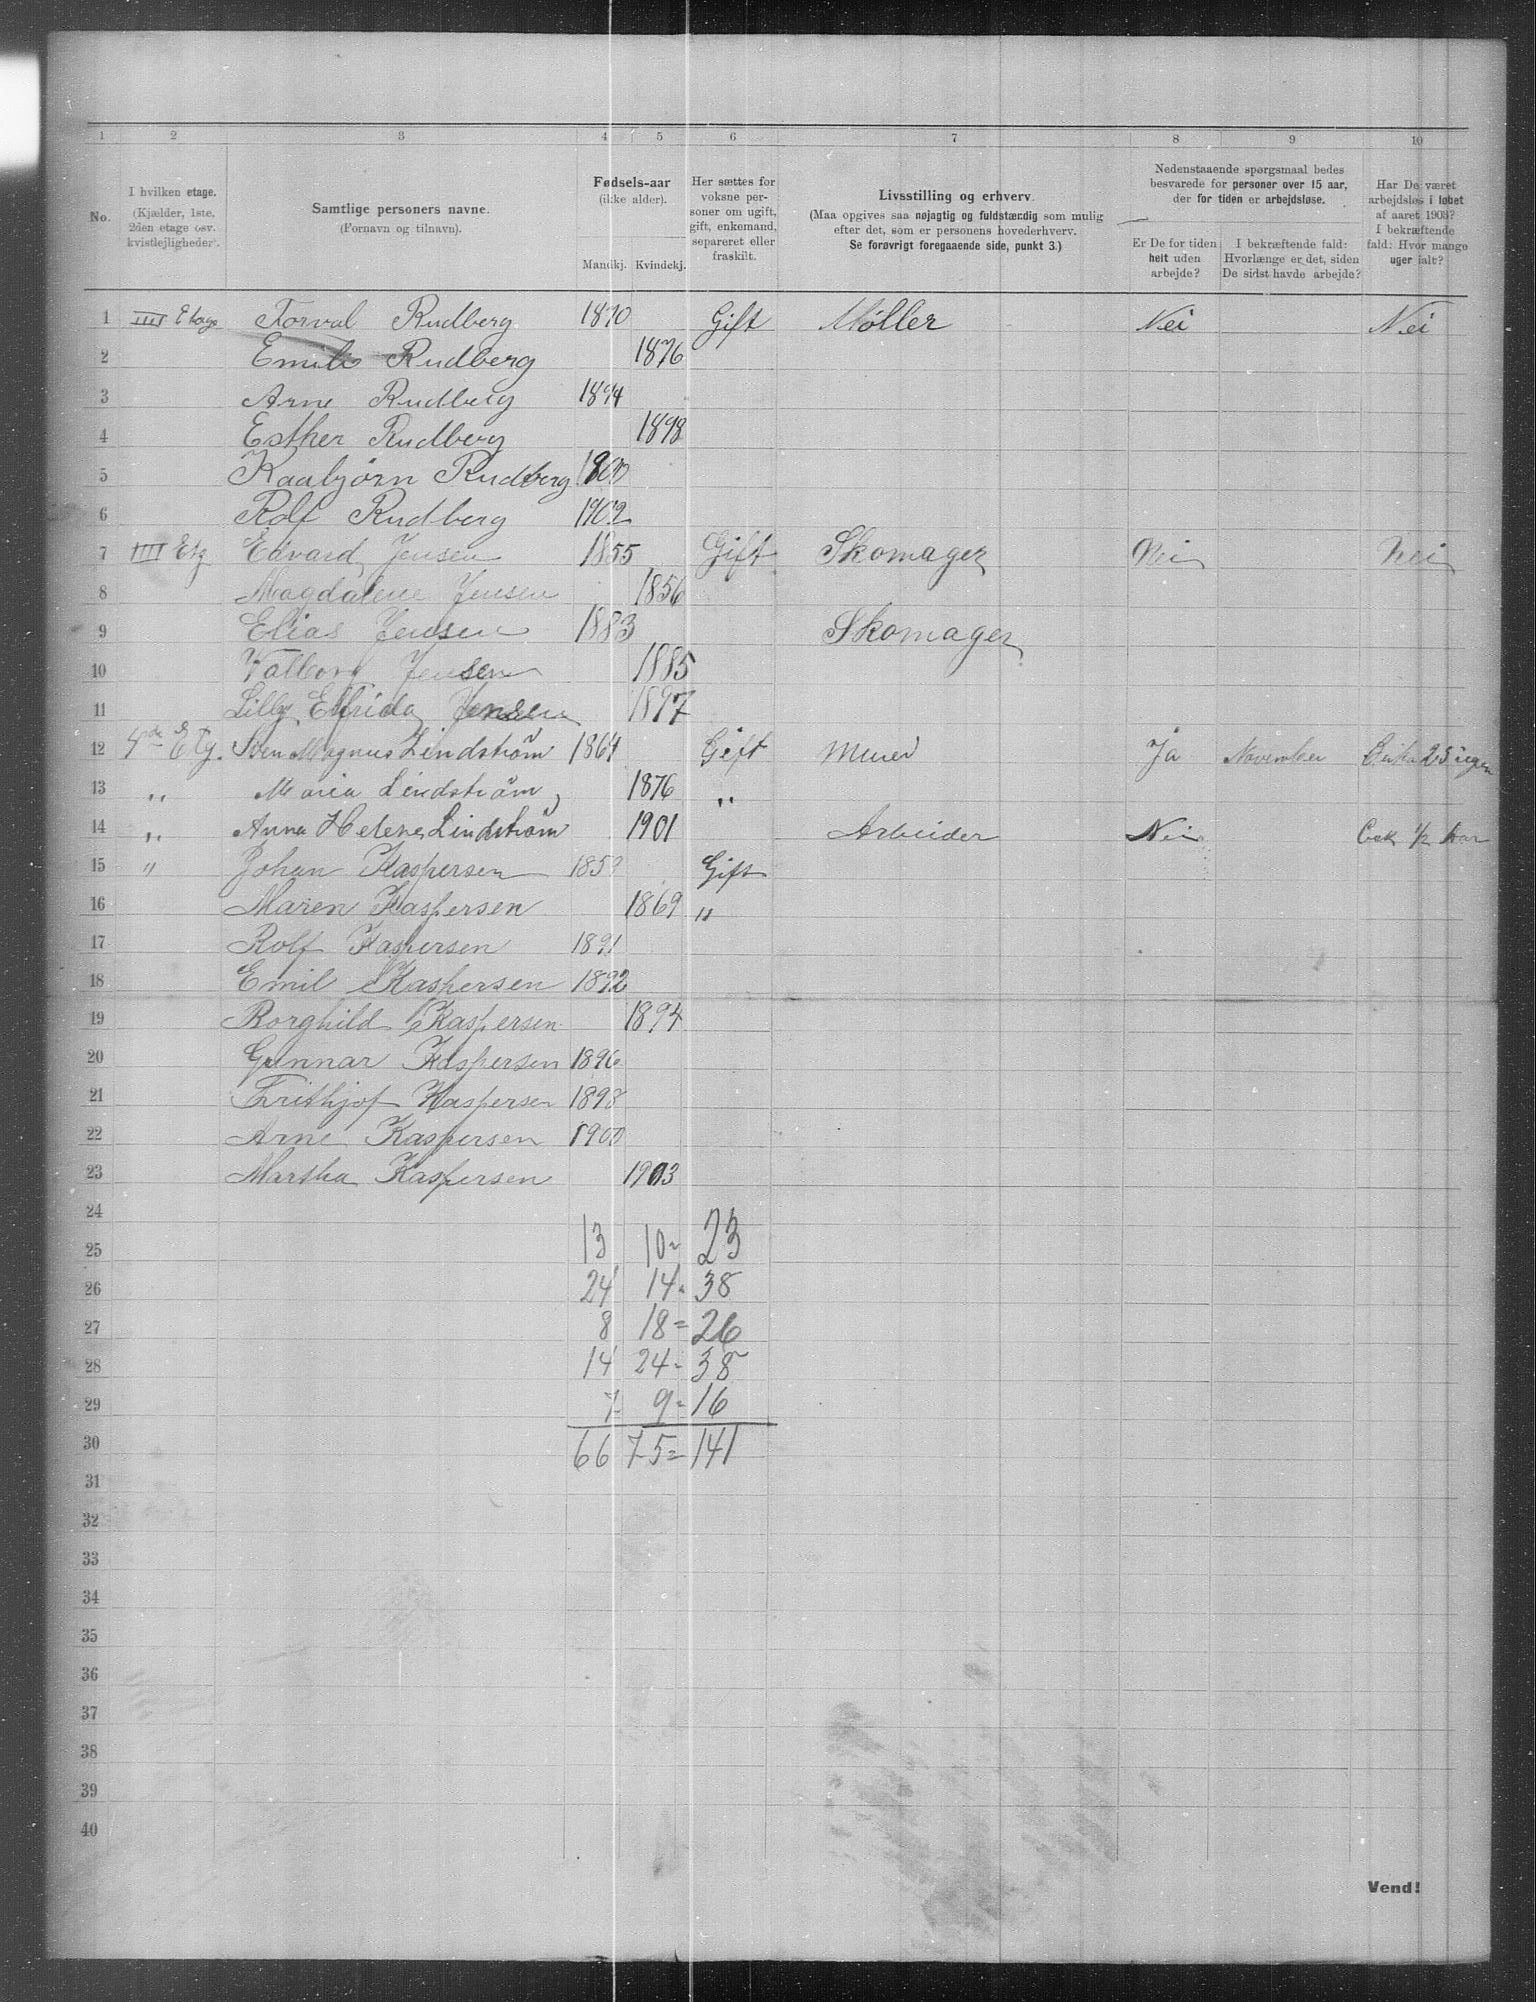 1 2 3 4 5 6 7 8 9 10
No.
I hvilken etage.
(Kjælder, 1ste,
2den etage osv.
kvistlejligheder).
Samtlige personers navne.
(Fornavn og tilnavn).
Fødsels-aar
(ikke alder).
Mandkj. Kvindekj.
Her sættes for
voksne per-
soner om ugift,
gift, enkemand,
separeret eller
fraskilt.
Livsstilling og erhverv.
(Maa opgives saa nøjagtig og fuldstændig som mulig
efter det, som er personens hovederhverv.
Se forøvrigt foregaaende side, punkt 3.)
Nedenstaaende spørgsmaal bedes
besvarede for personer over 15 aar,
der for tiden er arbejdsløse.
Er De for tiden
helt uden
arbejde?
I bekræftende fald:
Hvorlænge er det, siden
De sidst havde arbejde?
Har De været
arbejdsløs i løbet
af aaret 1903?
I bekræftende
fald: Hvor mange
uger ialt?
1 IIII Etage Torval Rudberg 1870 Gift Møller Nei Nei
2 Emilie Rudberg 1876
3 Arne Rudberg 1894
4 Esther Rudberg 1898
5 Kaabjørn Rudberg 1900
6 Rolf Rudberg 1902
7 IIII Etg Edvard Jensen 1855 Gift Skomager Nei Nei
8 Magdalene Jensen 1856
9 Elias Jensen 1883 Skomager
10 Valborg Jensen 1885
11 Lilly Elfrida Jensen 1897
12 4de Etg. Sven Magnus Lindström 1864 Gift Murer Ja November Cirka 25 uger
13 " Maria Lindström 1876 "
14 " Anna Helene Lindström 1901 Arbeider Nei 1/2 Aar
15 " Johan Kaspersen Gift
16 Maren Kaspersen 1869 "
17 Rolf Kaspersen 1891
18 Emil Kaspersen 1892
19 Borghild Kaspersen 1894
20 Gunnar Kaspersen 1896
21 Frithjof Kaspersen 1898
22 Arne Kaspersen 1900
23 Martha Kaspersen 1903
24
25 13 10 = 23
26 24 14 = 38
27 8 18 = 26
28 14 24 = 38
29 7 9 = 16
30 66 75 = 141
31
32
33
34
35
36
37
38
39
40
Vend!